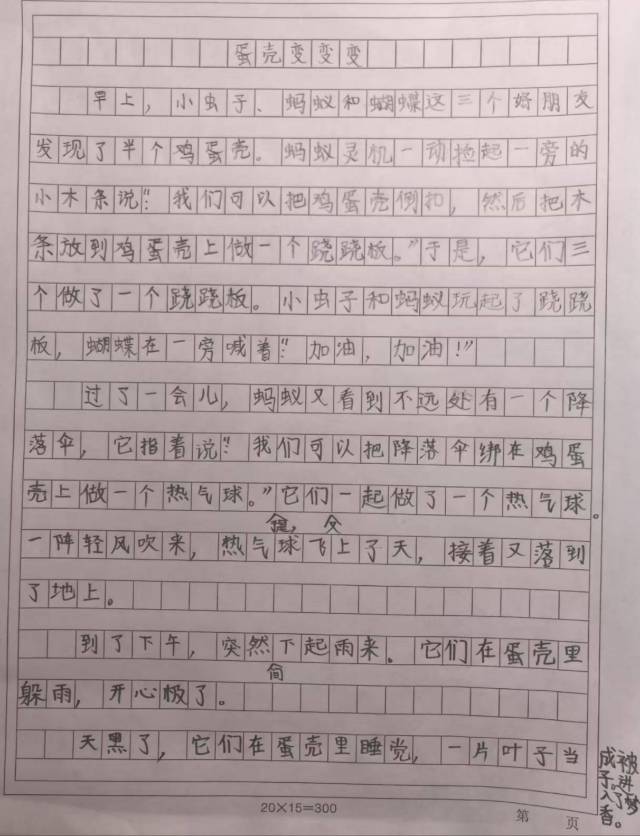 蛋壳变变变
早上，小虫子、蚂蚁和蝴蝶这三个好朋友
发现了半个鸡蛋壳。蚂蚁灵机一动捡起一旁的
小木条说：“我们可以把鸡蛋壳倒扣，然后把木
条放到鸡蛋壳上做一个跷跷板。”于是，它们三
个做了一个跷跷板。小虫子和蚂蚁玩起了跷跷
板，蝴蝶在一旁喊着：“加油，加油！”
过了一会儿，蚂蚁又看到不远处有一个降
落伞，它指着说：“我们可以把降落伞绑在鸡蛋
壳上做一个热气球。”它们一起做了一个热气球。
一阵轻风吹来，热气球飞上了天，接着又落到
了地上。
到了下午，突然下起雨来．它们在蛋壳里
躲雨，开心极了。
天黑了，它们在蛋壳里睡觉，一片叶子当
成被
子。进
入了梦
香。
20×15=300
第 页